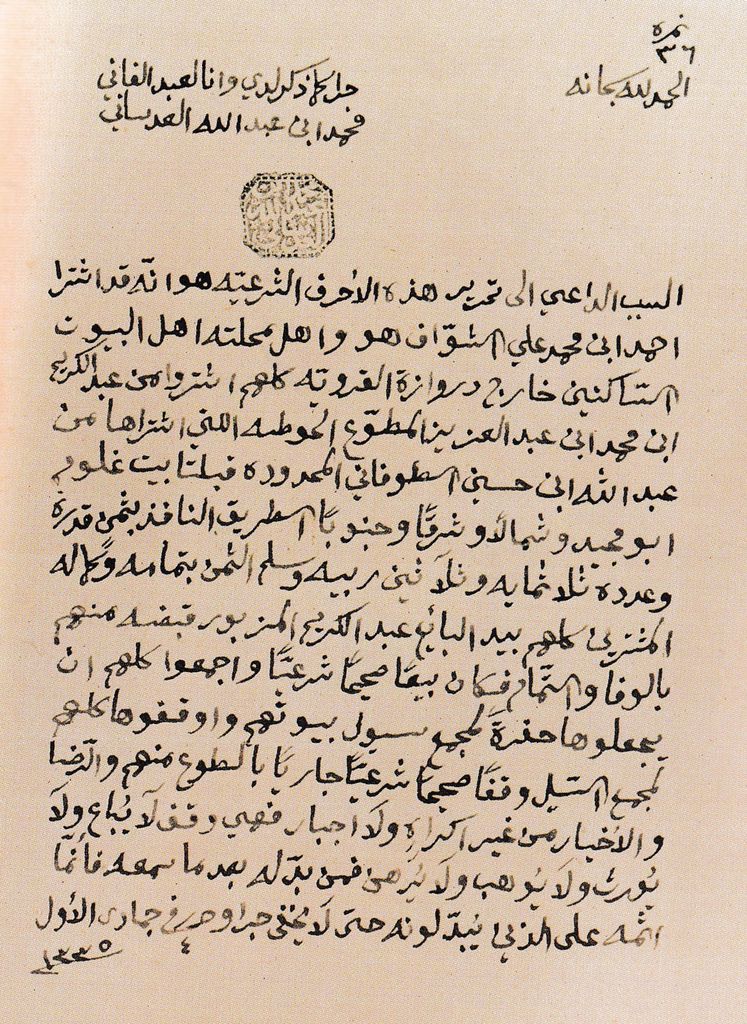 نمره
٣٦
الحمد لله سبحانه
جرا كما ذكر لدي وانا العبد الفاني
محمد ابن عبد الله العدساني
السبب الداعي الى تحرير هذه الأحرف الشرعيّه هو انّه قد اشترا
احمد ابن محمد علي الشوّاف هو واهل محلته اهل البيوت
السّاكنين خارج دروازة القرويّه كلهم اشتروا من عبد الكريم
ابن محمد ابن عبد العزيز المطوّع الحوطه اللتي اشتراها من
عبد الله ابن حسين الطوفاني المحدوده قبلتا بيت غلوم
ابو مجيد وشمالاً وشرقًا وجنوبًا الطريق النافذ بثمن قدره
وعدده ثلاثمايه وثلاثين ربيه وسلم الثمن بتمامه وكماله
المشترين كلهم بيد البائع عبد الكريم المزبور قبضه منهم
بالوفا والتّمام فكان بيعًا صحيحًا شرعيًا واجمعوا كلهم ان
يجعلوها حفرةً لمجمع سيول بيوتهم واوقفوها كلهم
لمجمع السّيل وقفًا صحيحًا شرعيًا جاريًا بالطوع منهم والرّضا
والأختيار من غير اكراهٍ ولا اجبار فهي وقف لا يُباع ولا
يُورث ولا يُوهب ولا يُرهن فمن بدّله بعد ما سمعه فأنّما
اثمه على الذين يُبدّلونه حتى لا يخفى جرا وحرر في ٤ جمادى الأول
١٣٣٥